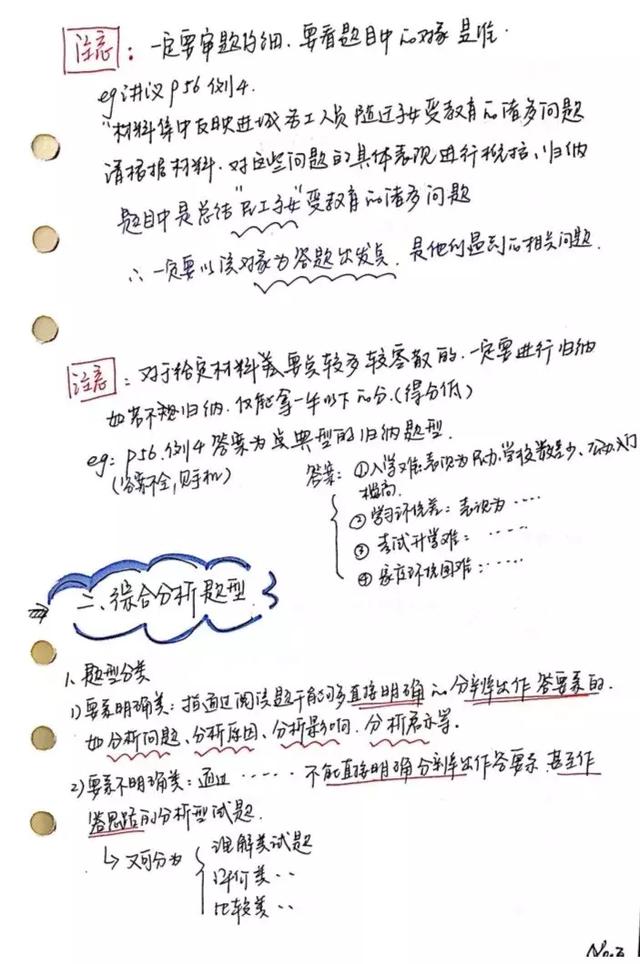 注意：一定要审题仔细，要看题目中的对象是谁.
eg 讲义 P56 例4.
"材料集中反映进城务工人员随迁子女受教育的诸多问题
请根据材料，对这些问题的具体表现进行概括、归纳
题目中是总结"民工子女"受教育的诸多问题
∴ 一定要以该对象为答题出发点，是他们遇到的相关问题.
注意：对于给定材料 要点较多较零散的，一定要进行归纳
如若不想归纳，仅能拿一半以下的分.(得分低)
eg：P56.例4 答案为点典型的归纳题型.
(答案不全,见手机)
答案：①入学难：表现为民办学校数量少、公办入门
槛高.
②学习环境差：表现为……
③考试升学难：……
④家庭环境困难：……
二、综合分析题型
1、题型分类
1)要素明确类：指通过阅读题干能够直接明确的分辨出作答要素的.
如分析问题、分析原因、分析影响、分析启示等.
2)要素不明确类：通过……不能直接明确分辨出作答要素,甚至作
答思路的分析型试题.
↳又可分为
理解类试题
评价类‥
比较类‥
No.3